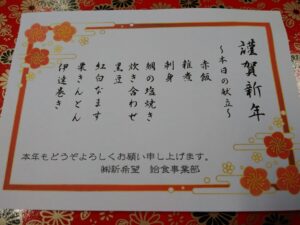 謹賀新年
～本日の献立～
赤飯
雑煮
刺身
鯛の塩焼き
炊き合わせ
黒豆
紅白なます
栗きんとん
伊達巻き
本年もどうぞよろしくお願い申し上げます。
㈱新希望 給食事業部